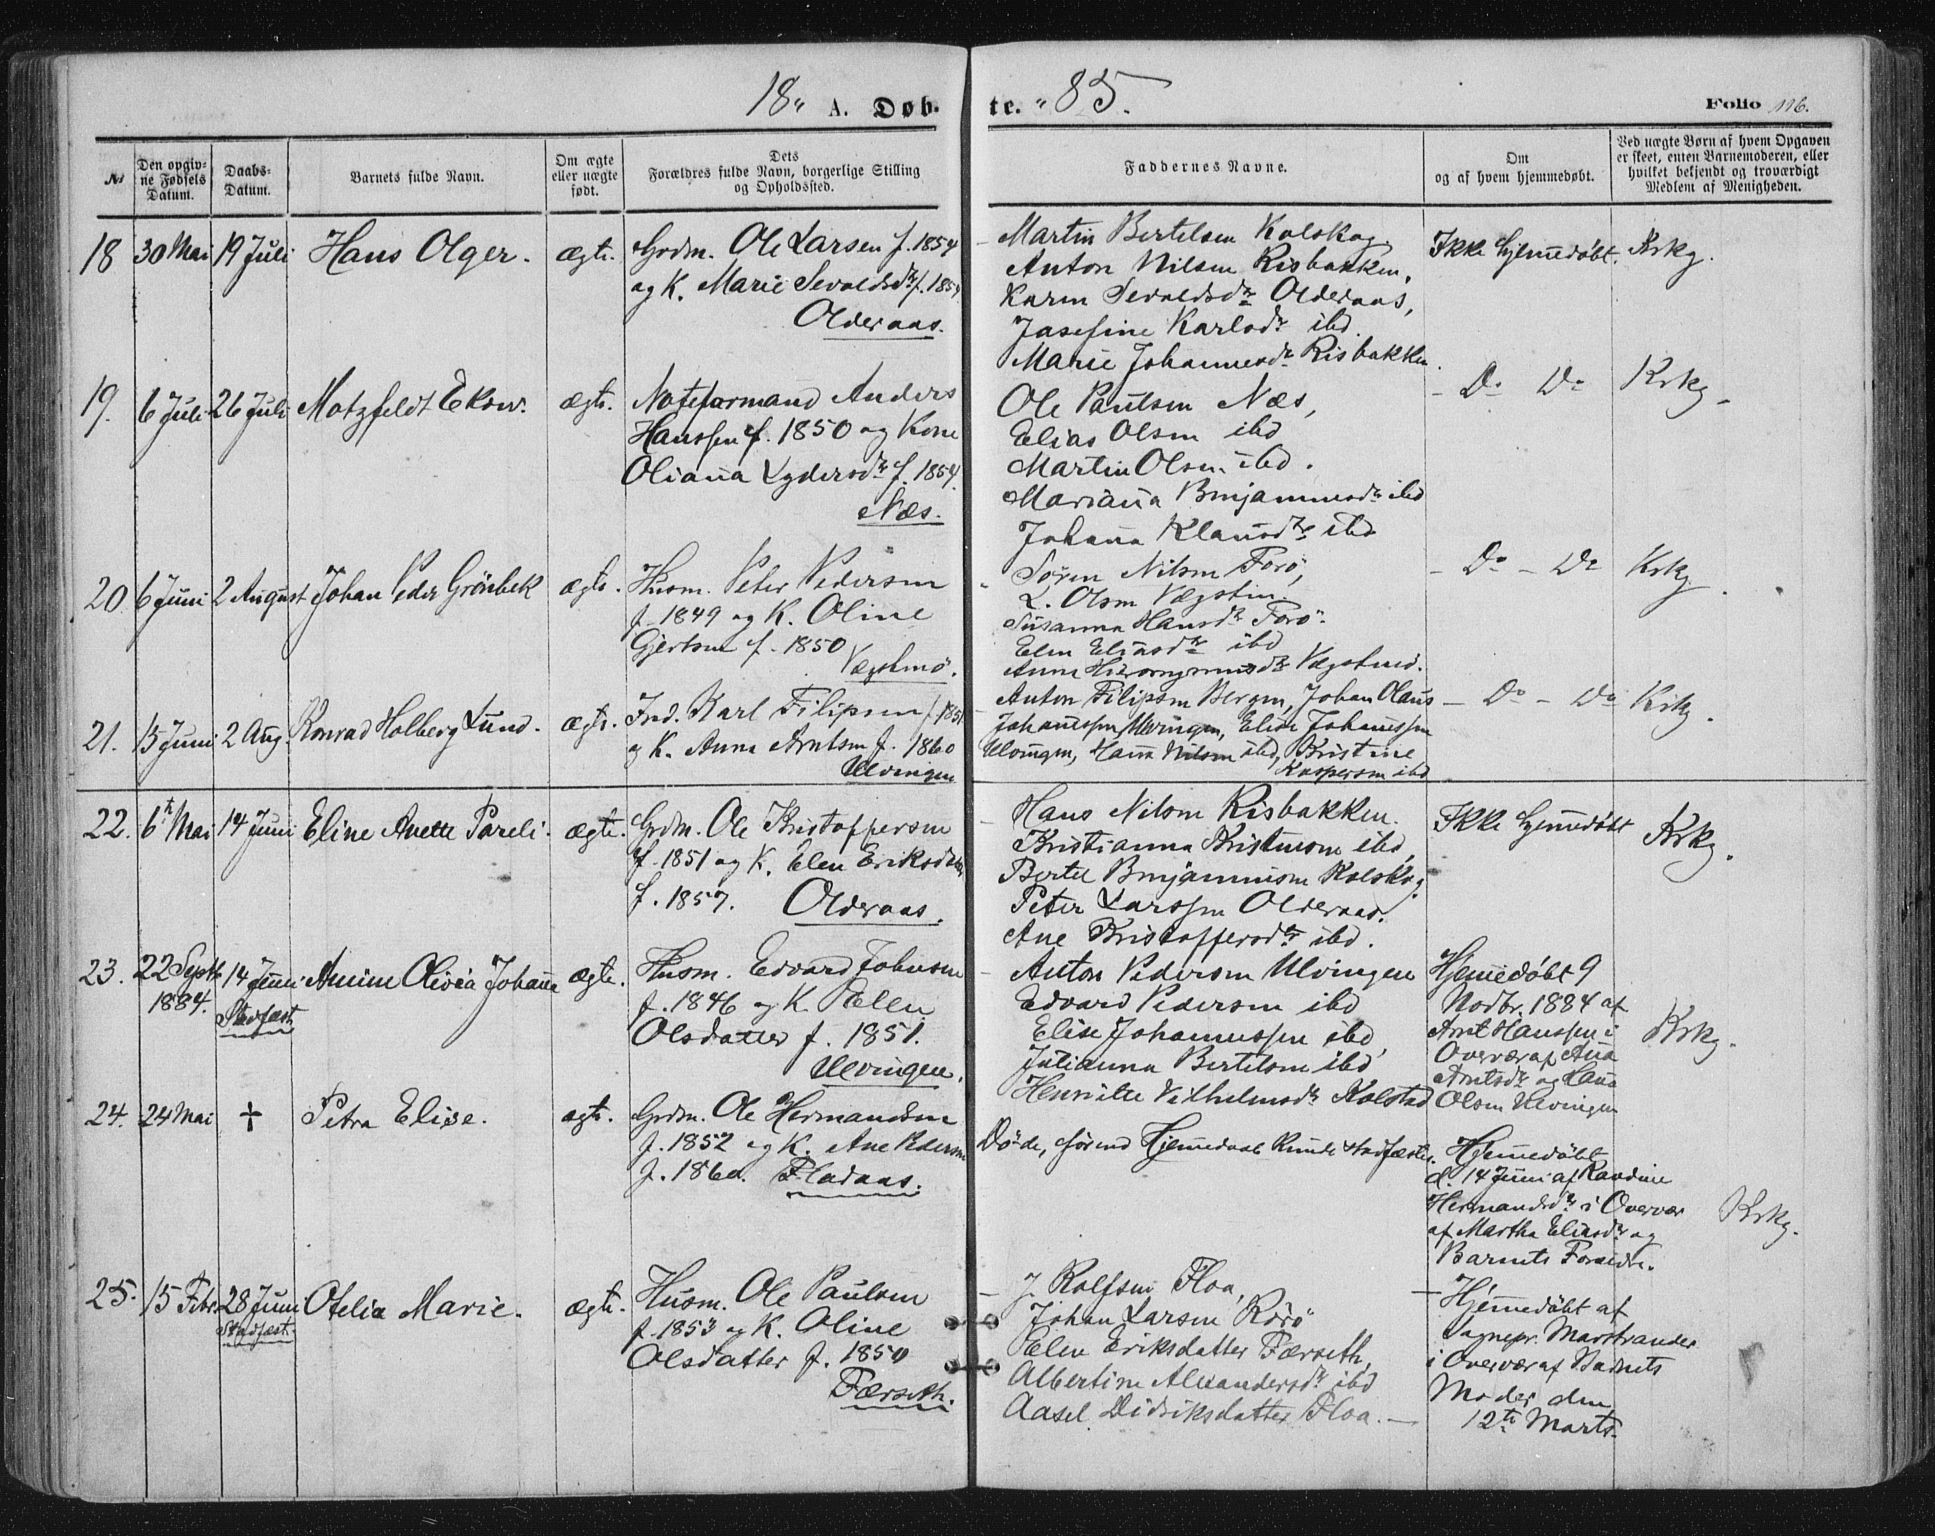 18 „ A. Døbte. „ 85.
Folio 116.
№
Den opgivne Fødsels Datum.
Daabs-Datum.
Barnets fulde Navn.
Om ægte eller uægte født.
Dets Forældres fulde Navn, borgerlige Stilling og Opholdssted.
Faddernes Navne.
Om og af hvem hjemmedøbt.
Ved uægte Børn af hvem Opgaven er skeet, enten Barnemoderen, eller hvilket bekjendt og troværdigt Medlem af Menigheden.
18 30 Mai 19 Juli Hans Olger. ægte.
Grdm. Ole Larsen f. 1854
og K. Marie Sevaldsdr f. 1854
Olderaas.
Martin Bertelsen Kolskog
Anton Nilsen Risbakken,
Karen Sevaldsdr Olderaas,
Josefine Karlsdr ibd.
Marie Johannesdr Risbakken
Ikke hjemedøbt. Krkg.
19. 6 Juli 26 Juli Motzfeldt Ekow. ægte.
Noteformand Anders
Hanssen f. 1850 og Kone
Oliana Lydersdr f. 1854.
Næs.
Ole Paulsen Næs,
Elias Olsen ibd
Martin Olsen ibd.
Mariana Benjaminsdr ibd
Johana Klausdr ibd
Do Do Krkg.
20. 6 Juni 2 August Johan Peder Grönbek ægte.
Husm. Peter Pedersen
f. 1849 og K. Oline
Gjertsen f. 1850
Vægstmö.
Sören Nilsen Forö,
L. Olsen Vægstin.
Susanna Hansdr Forö.
Elen Eliasdr ibd
Anne Hieronymusdr Vægstmö.
Do - Do Krkg.
21. 15 Juni 2 Aug. Konrad Holberg Lund. ægte.
Ind. Karl Filipsen f. 1851
og K. Anna Arntsen f. 1860
Ulvingen
Anton Filipsen Bergen, Johan Olaus
Johanessen Ulvingen, Elise Johanessen
Ulvingen, Hana Nilsen ibd, Kristine
Kaspersen ibd
Do - Do Krkg.
22. 6te Mai 14 Juni Eline Anette Pareli. ægte.
Grdm. Ole Kristoffersen
f. 1851 og K. Elen Eriksdatter
f. 1857. Olderaas.
Hans Nilsen Risbakken.
Kristianna Kristensen ibd,
Bertel Benjaminsen Kolskog
Peter Larssen Olderaas.
Ane Kristoffersdr ibd.
Ikke hjemedøbt Krkg.
23. 22 Septbr 1884. 14 Juni Stadfæst. Amine Olivia Johana ægte.
Husm. Edvard Johnsen
f. 1846 og K. Elen
Olsdatter f. 1851.
Ulvingen.
Anton Pedersen Ulvingen
Edvard Pedersen ibd
Elise Johannessen ibd,
Julianna Bertelsen ibd
Henriette Vilhelmsdr Kolstad
Hjemedøbt 9
Novbr. 1884 af
Arnt Hanssen i
Overvær af Ana
Arntsdr og Lana
Olsen Ulvingen
Krkg.
24. 24 Mai † Petra Elise. ægte.
Grdm. Ole Hermandsen
f. 1852 og K. Ane Pedersen
f. 1860. Fladaas.
Døde, førend Hjemedaab kunde stadfæstes.
Hjemedøbt
d. 14 Juni af Randine
Hermandsdr i Overvær
af Martha Eliasdr og
Barnets Forældre.
Krkg.
25. 15 Febr. 28 Juni Stadfæst. Otelia Marie. ægte.
Husm. Ole Paulsen
f. 1853 og K. Oline
Olsdatter f. 1850
Færseth.
J. Rolfsen Floa,
Johan Larsen Rörö
Elen Eriksdatter Færseth,
Albertine Alexandersdr ibd
Aasel Didriksdatter Floa.
Hjemedøbt af
Sognepr. Marstrander
i Overvær af Barnets
Moder den
12te Marts.